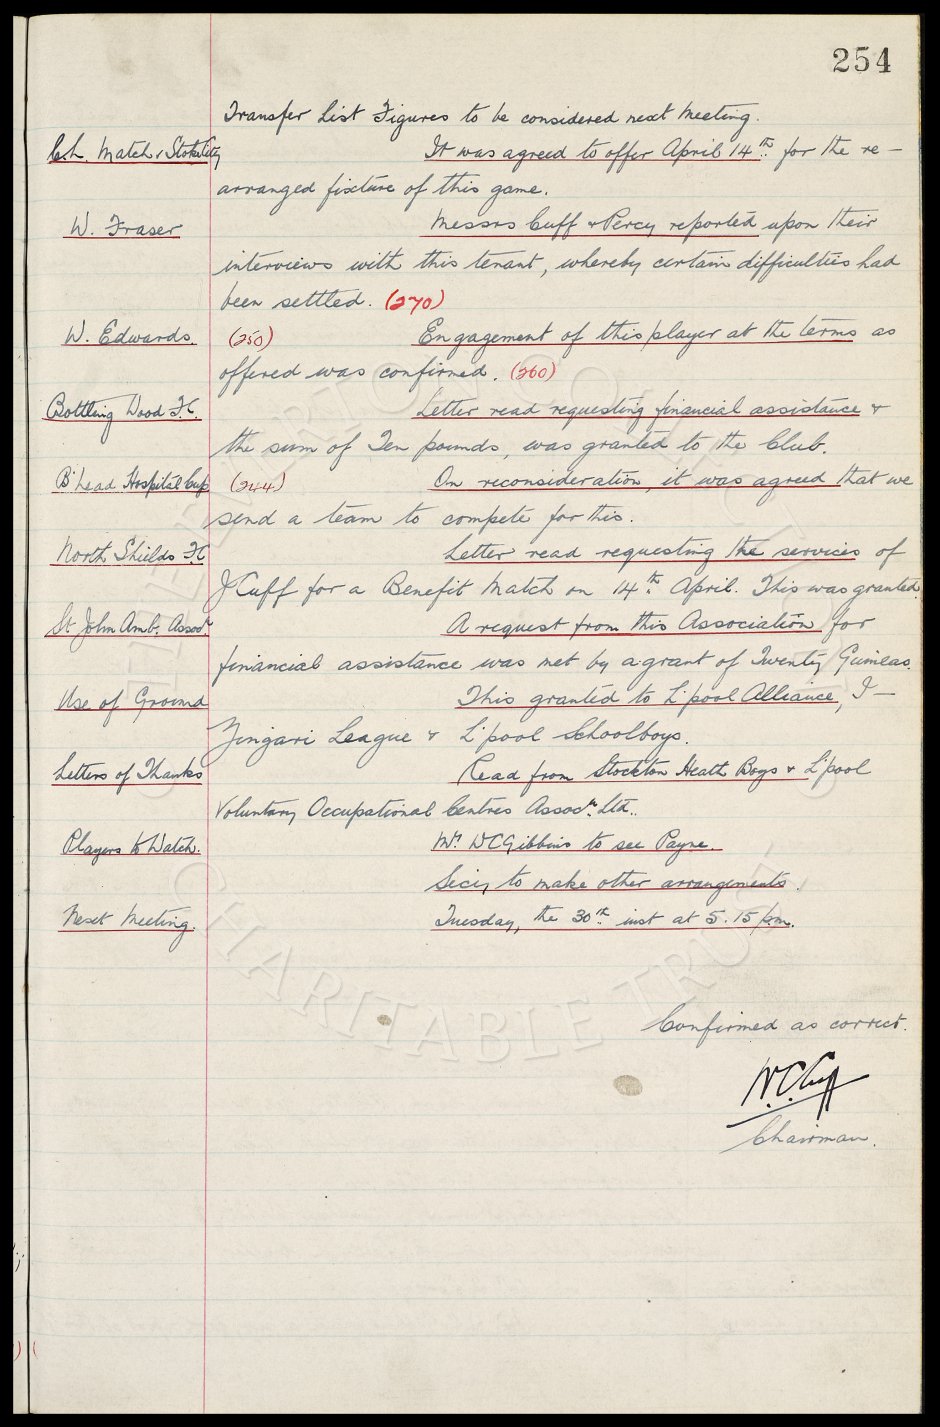 254
Transfer List Figures to be considered next Meeting.
C.L. Match v Stoke City It was agreed to offer April 14th. for the re-
arranged fixture of this game.
W. Fraser Messrs Cuff & Percy reported upon their
interviews with this tenant, whereby certain difficulties had
been settled. (270)
W. Edwards. (250) Engagement of this player at the terms as
offered was confirmed. (260)
Bottling Wood F.C. Letter read requesting financial assistance &
the sum of Ten pounds, was granted to the Club.
B'head Hospital Cup (244) On reconsideration, it was agreed that we
send a team to compete for this.
North Shields F.C Letter read requesting the services of
J Cuff for a Benefit Match on 14th. April. This was granted.
St John Amb. Assocn. A request from this Association for
financial assistance was met by a grant of Twenty Guineas.
Use of Ground This granted to L'pool Alliance, I-
Zingari League & L'pool Schoolboys.
Letters of Thanks Read from Stockton Heath Boys & L'pool
Voluntary Occupational Centres Assocn. Ltd..
Players to Watch. Mr WCGibbins to see Payne.
Secy to make other arrangements.
Next Meeting. Tuesday, the 30th inst at 5.15 pm.
Confirmed as correct.
W.C. Cuff
Chairman.
THE EVERTON COLLECTION
CHARITABLE TRUST